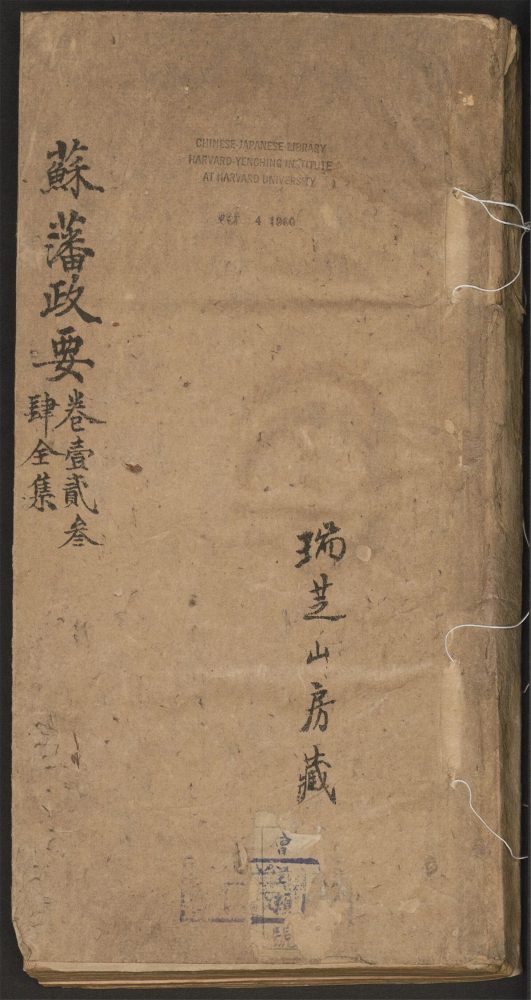 CHINESE-JAPANESE LIBRARY
HARVARD-YENCHING INSTITUTE
AT HARVARD UNIVERSITY
4 1960
瑞芝山房藏
蘇藩政要
卷壹貳叁
肆全集